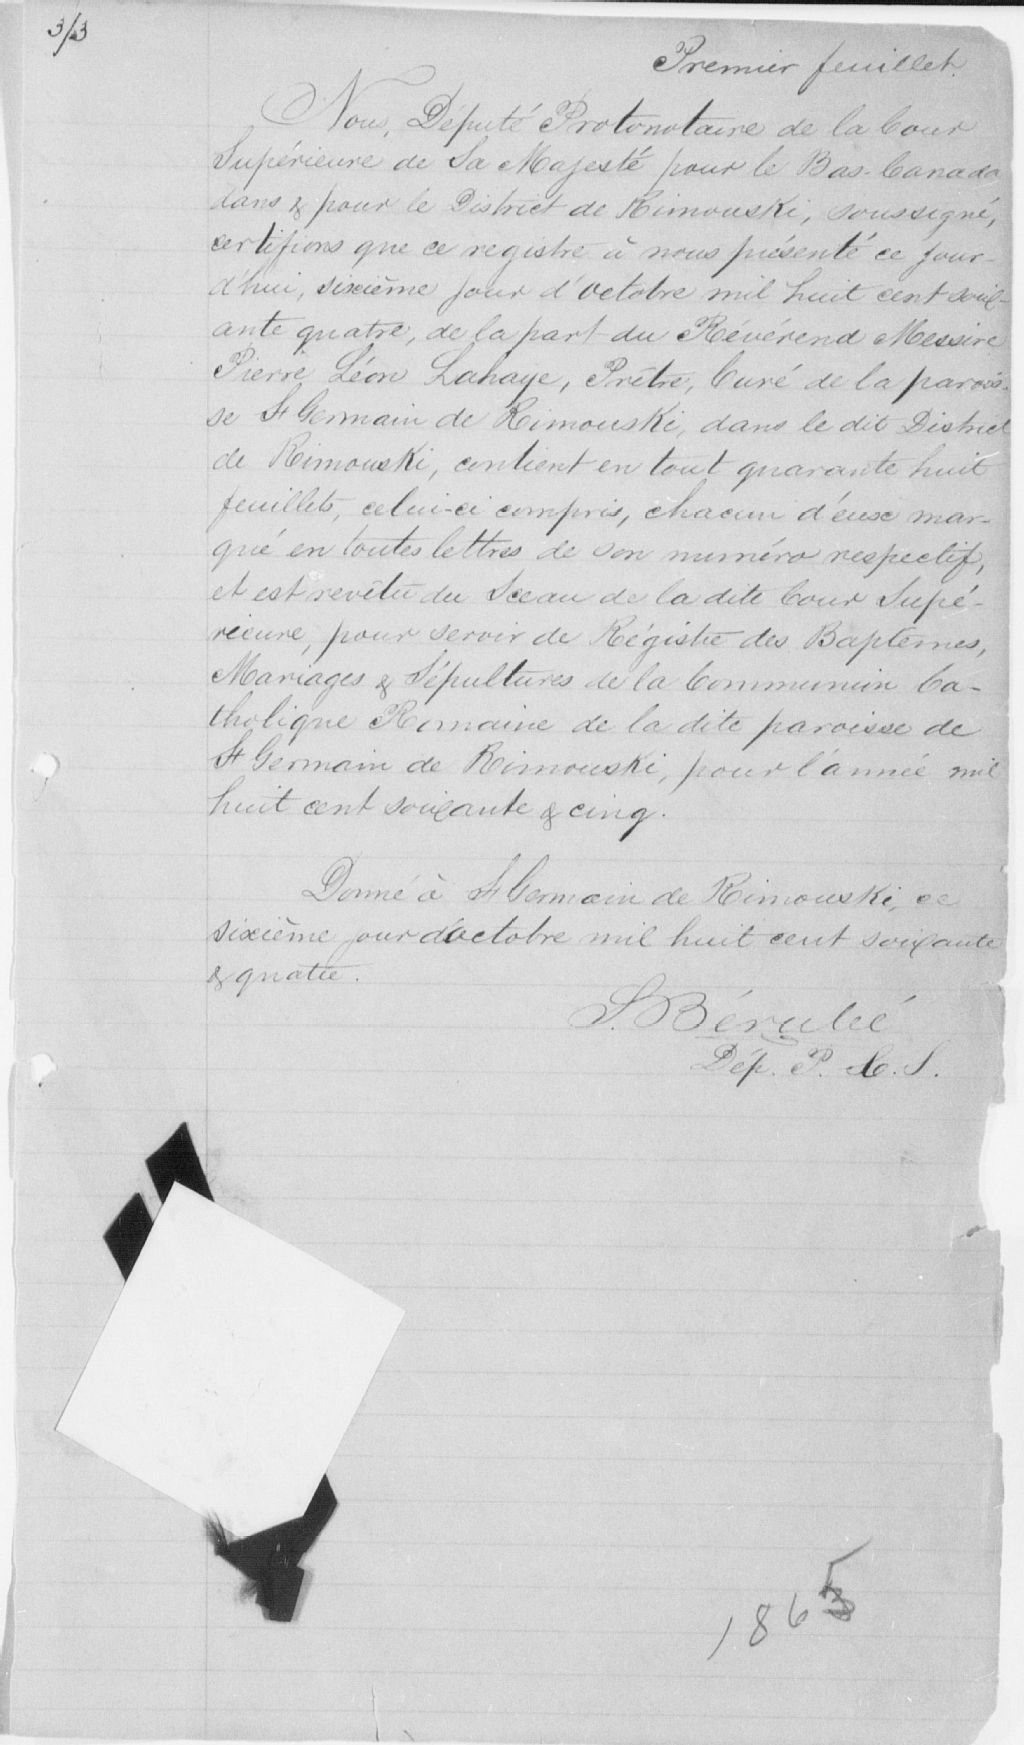 3/3
Premier feuillet.
Nous, Député Protonotaire de la Cour
Supérieure de Sa Majesté pour le Bas-Canada
dans & pour le District de Rimouski, soussigné,
certifions que ce registre à nous présenté ce jour-
d'hui, sixième jour d'octobre mil huit cent soix-
ante quatre, de la part du Révérend Messire
Pierre Léon Lahaye, Prêtre, Curé de la parois-
se St Germain de Rimouski, dans le dit District
de Rimouski, contient en tout quarante huit
feuillets, celui-ci compris, chacun d'eux mar-
qué en toutes lettres de son numéro respectif,
et est revêtu du Sceau de la dite Cour Supé-
rieure, pour servir de Régistre des Baptêmes,
Mariages & Sépultures de la Communion Ca-
tholique Romaine de la dite paroisse de
St Germain de Rimouski, pour l'année mil
huit cent soixante & cinq.
Donné à St Germain de Rimouski, ce
sixième jour d'octobre mil huit cent soixante
& quatre.
S. Bérubé
Dép. P. C. S.
1865